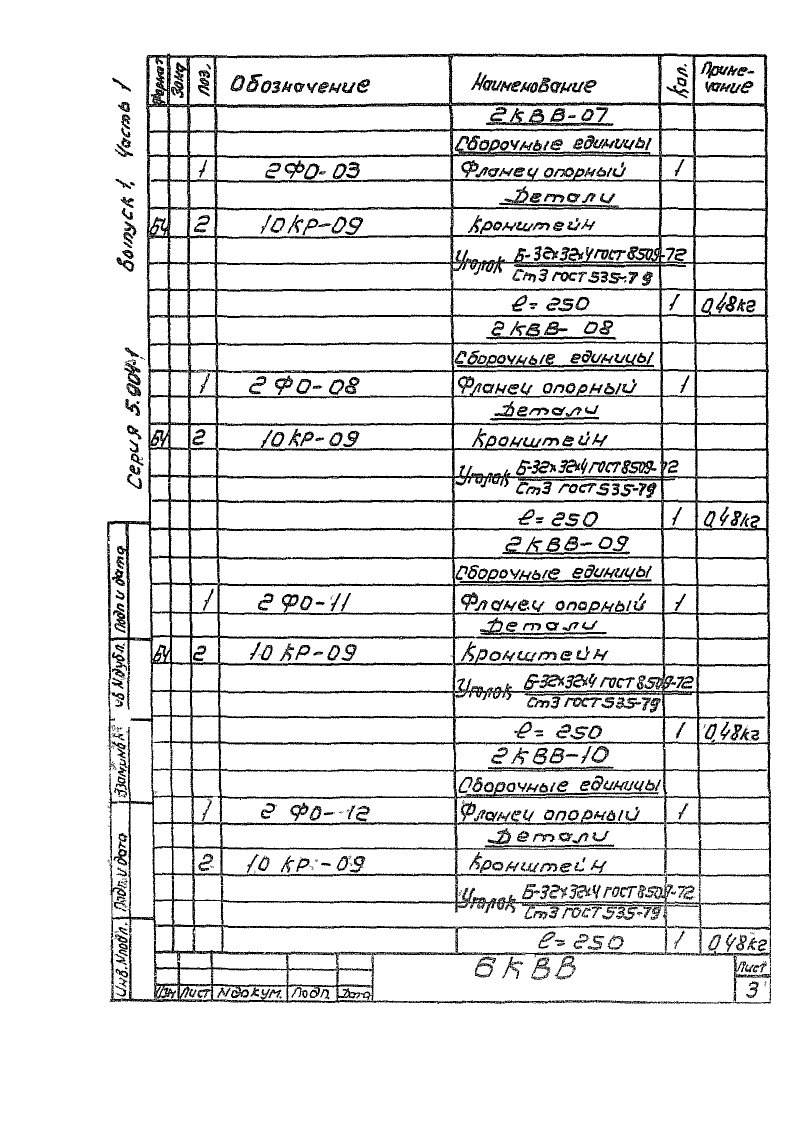 Серия 5.904-1 Выпуск 1, Часть 1
Формат Зона Поз. Обозначение Наименование Кол. Приме-
чание
2КВВ-07
Сборочные единицы
1 2ФО-03 Фланец опорный 1
Детали
БЧ 2 10КР-09 Кронштейн
Уголок Б-32х32х4 ГОСТ 8509-72
Ст3 ГОСТ 535-79
ℓ=250 1 0,48кг
2КВВ-08
Сборочные единицы
1 2ФО-08 Фланец опорный 1
Детали
БЧ 2 10КР-09 Кронштейн
Уголок Б-32х32х4 ГОСТ 8509-72
Ст3 ГОСТ 535-79
ℓ=250 1 0,48кг
2КВВ-09
Сборочные единицы
1 2ФО-11 Фланец опорный 1
Детали
БЧ 2 10КР-09 Кронштейн
Уголок Б-32х32х4 ГОСТ 8509-72
Ст3 ГОСТ 535-79
ℓ=250 1 0,48кг
2КВВ-10
Сборочные единицы
1 2ФО-12 Фланец опорный 1
Детали
2 10КР-09 Кронштейн
Уголок Б-32х32х4 ГОСТ 8509-72
Ст3 ГОСТ 535-79
ℓ=250 1 0,48кг
6КВВ
Лист
3
Изм Лист № докум. Подп. Дата
Подп и дата
Инв № дубл.
Взам инв №
Подп. и дата
Инв. № подл.